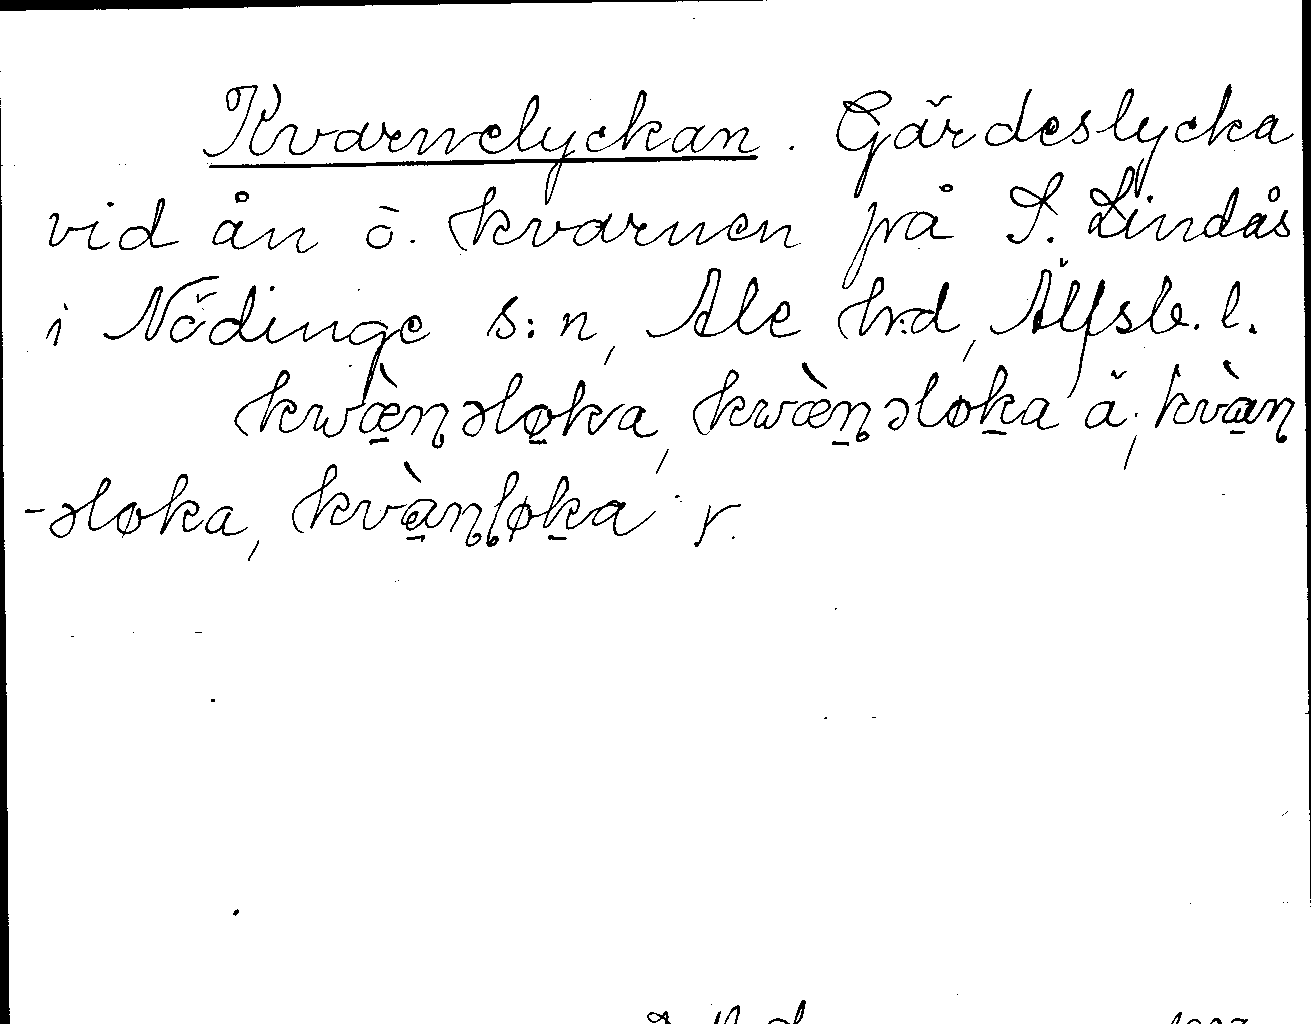 Kvarnelyckan. Gärdeslycka
vid ån ö. kvarnen på S. Lindås
i Nödinge s:n, Ale hrd, Älfsb. l.
kwæ̠̀ɳəlø̠ka, kwæ̀ɳ̠əløk̠a ä; kvà̠ɳ
-əløka, kvà̠ɳɭøk̠a y.